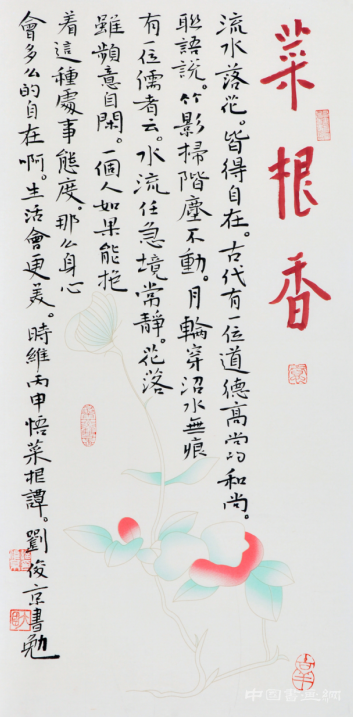 菜根香
流水落花。皆得自在。古代有一位道德高尚的和尚。
聯語説。竹影掃階塵不動。月輪穿沼水無痕
有一位儒者云。水流任急境常靜。花落
雖頻意自閑。一個人如果能抱
着這種處事態度。那么身心
會多么的自在啊。生活會更美。時維丙申悟菜根譚。劉俊京書勉
中国書画網